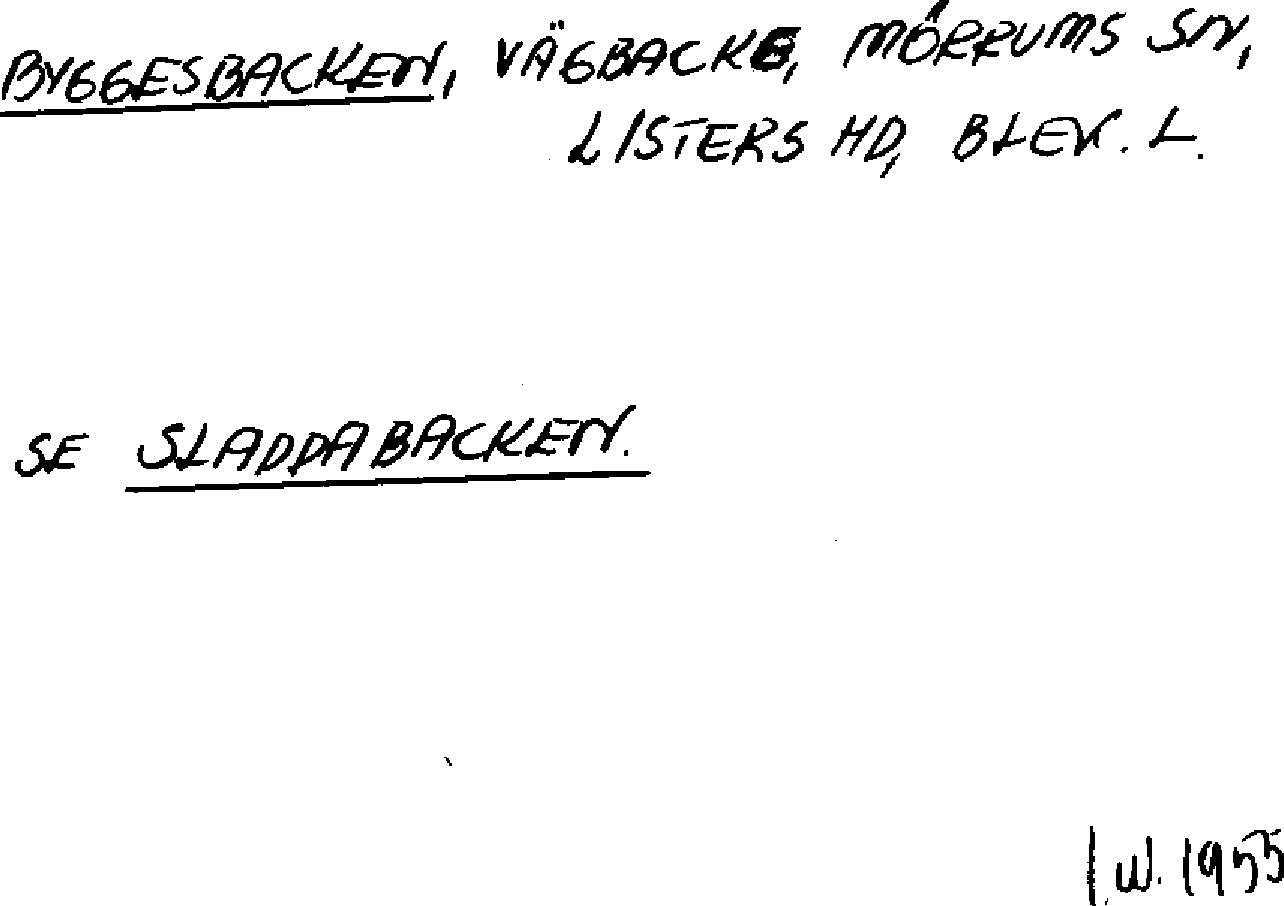 BYGGESBACKEN, VÄGBACKE, MÖRRUMS SN,
LISTERS HD, BLEK. L.
SE SLADDABACKEN.
I.W. 1955